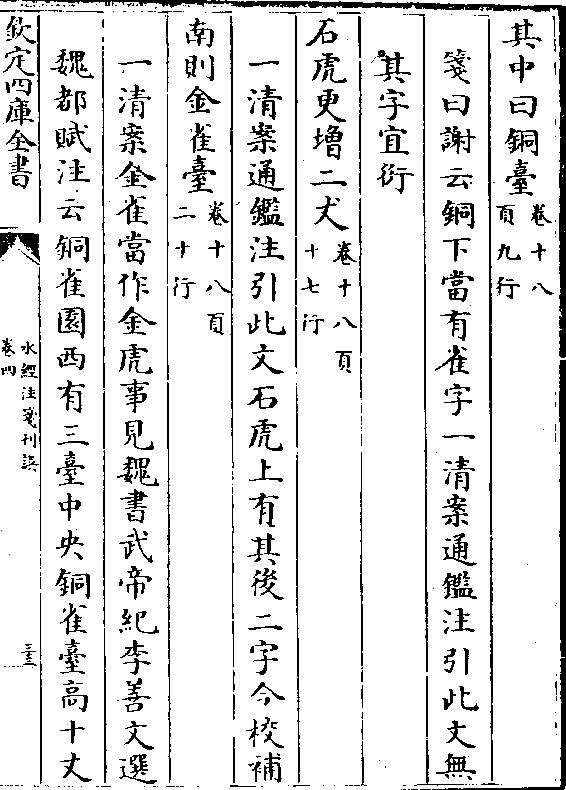 其中曰銅臺卷十八頁九行
箋曰謝云銅下當有雀字一清案通鑑注引此文無
其字宜衍
石虎更增二丈卷十八頁十七行
一清案通鑑注引此文石虎上有其後二字今校補
南則金雀臺卷十八頁二十行
一清案金雀當作金虎事見魏書武帝紀李善文選
魏都賦注云銅雀園西有三臺中央銅雀臺高十丈
欽定四庫全書
水經注箋刊誤
卷四